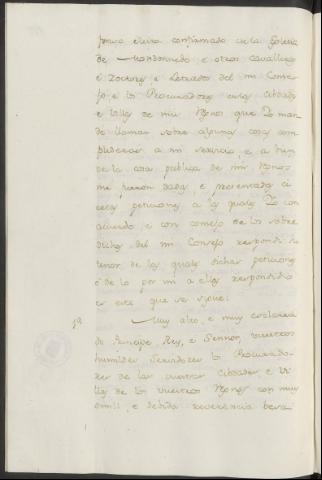 electo confirmado de la Iglesia
de Mondoñedo, e otros cavalleros
e Doctores e Letrados del mi Conse-
jo, e los Procuradores de las Cibdades
e Villas de mis Reynos que Yo man-
dé llamar sobre algunas cosas com-
plideras a mi servicio, e a bien
de la cosa publica de mis Reynos
me fueron dadas, e presentadas ci-
ertas peticiones a las quales Yo con
acuerdo, e con consejo de los sobre
dichos del mi Consejo respondi el
tenor de las quales dichas peticiones
e de lo por mi a ellas respondido
es este que se sigue:
1ª Muy alto, e muy esclarecido
Principe, Rey, e Señor, vuestros
humildes Servidores los Procurado-
res de las vuestras Cibdades, e Vi-
llas de los vuestros Reynos con muy
omill, e debida reverencia besa